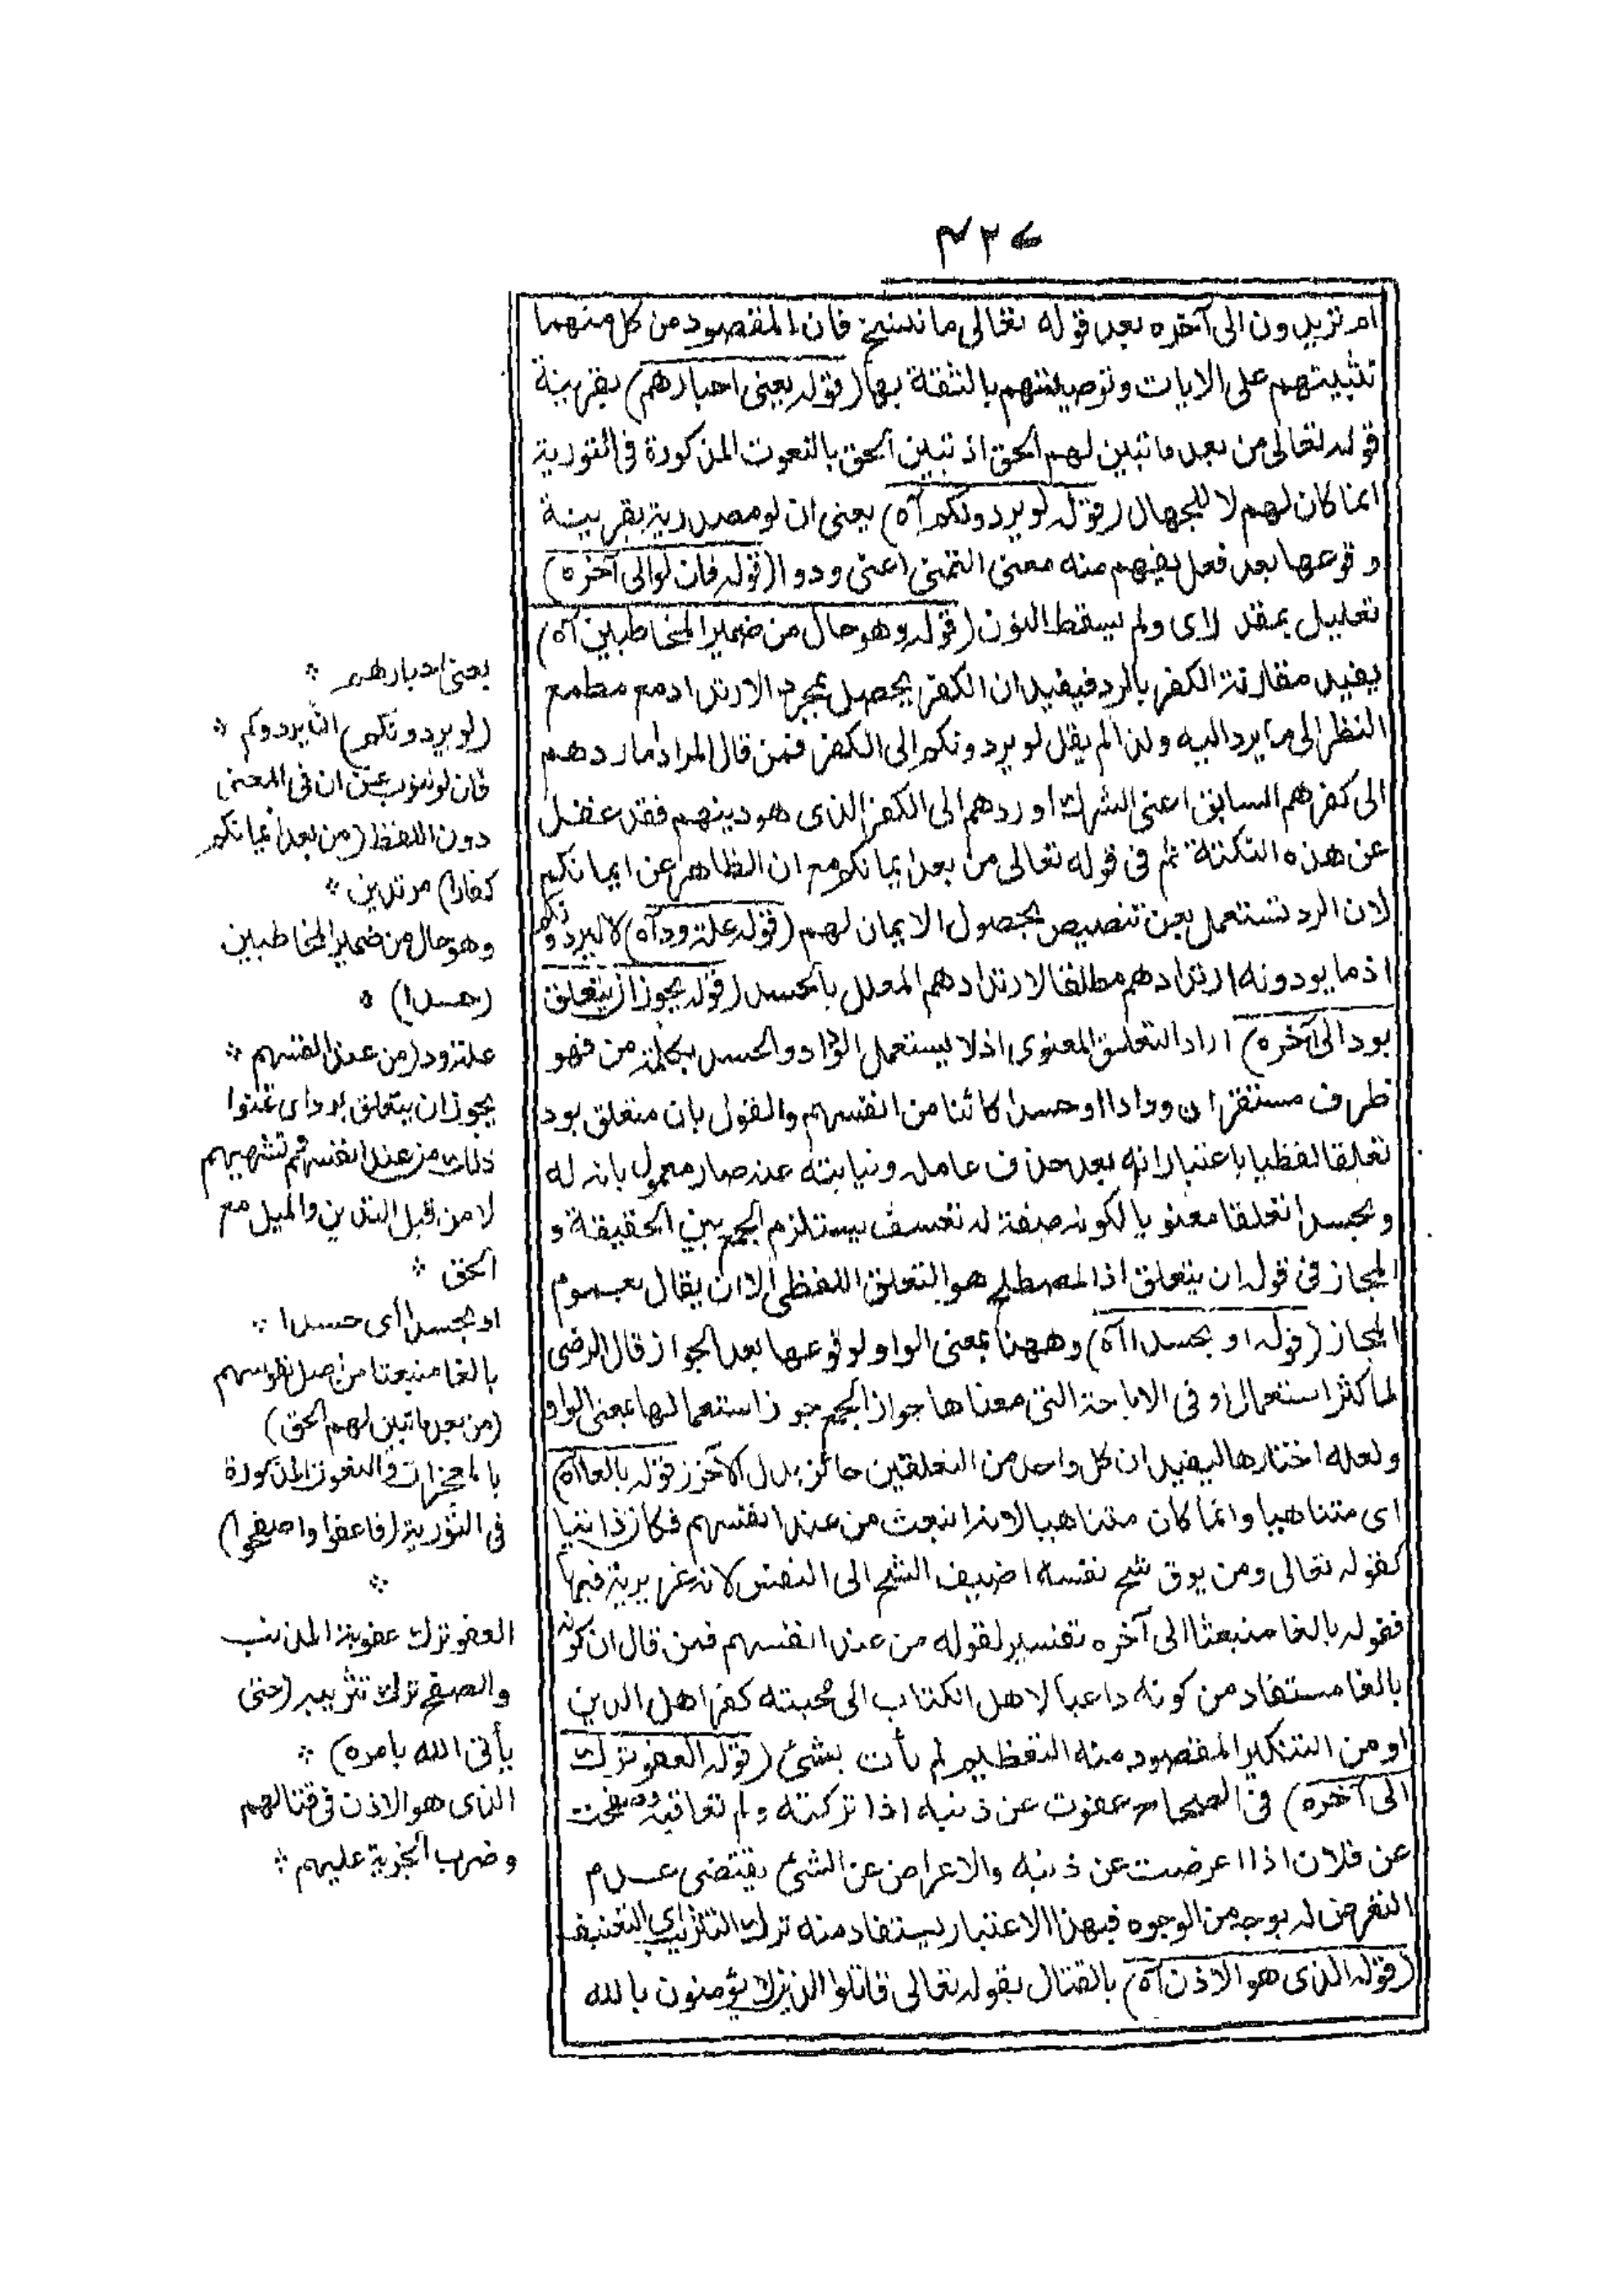 ٤٢٧
ام تريدون الى آخره بعد قوله تعالى ما ننسخ فان المقصود من كل منهما
تثبيتهم على الايات وتوصيتهم بالثقة بها (قوله يعنى احبارهم) بقرينة
قوله تعالى من بعد ما تبين لهم الحق اذ تبين الحق بالنعوت المذكورة فى التورية
انما كان لهم لا للجهال (قوله لو يردونكم آه) يعنى ان لو مصدرية بقرينة
وقوعها بعد فعل يفهم منه معنى التمنى اعنى ودوا (قوله فان لو الى آخره)
تعليل بمقدر اى ولم يسقط النون (قوله وهو حال من ضمير المخاطبين آه)
يفيد مقارنة الكفر بالرد فيفيد ان الكفر يحصل بمجرد الارتداد مع قطع
النظر الى ما يرد اليه ولذا لم يقل لو يردونكم الى الكفر فمن قال المراد ما ردهم
الى كفرهم السابق اعنى الشرك او ردهم الى الكفر الذى هو دينهم فقد غفل
عن هذه النكتة ثم فى قوله تعالى من بعد ايمانكم مع ان الظاهر عن ايمانكم
لان الرد تستعمل بعن تنصيص بحصول الايمان لهم (قوله علة ود آه) لا ليردونكم
اذ ما يودونه ارتدادهم مطلقا لا ارتدادهم المعلل بالحسد (قوله يجوز ان يتعلق
بود الى آخره) اراد التعلق المعنوى اذ لا يستعمل الوداد والحسد بكلمة من فهو
ظرف مستقر ان ودادا او حسدا كائنا من انفسهم والقول بان متعلق بود
تعلقا لفظيا باعتبار انه بعد حذف عامله ونيابته عنه صار معمولا بانه له
وبحسدا تعلقا معنويا لكونه صفة له تعسف يستلزم الجمع بين الحقيقة و
المجاز فى قوله ان يتعلق اذ المصطلح هو التعلق اللفظى الا ان يقال بعموم
المجاز (قوله او بحسدا آه) وههنا بمعنى الواو لوقوعها بعد الجواز قال الرضى
لما كثر استعمال او فى الاباحة التى معناها جواز الجمع جوز استعمالها بمعنى الواو
ولعله اختارها ليفيد ان كل واحد من التعلقين جائز بدل الآخر (قوله بالغا آه)
اى متناهيا وانما كان متناهيا لانه انبعث من عند انفسهم فكان ذاتيا
كقوله تعالى ومن يوق شح نفسه اضيف الشح الى النفس لانه غريزية فيها
فقوله بالغا منبعثا الى آخره تفسير لقوله من عند انفسهم فمن قال ان كونه
بالغا مستفاد من كونه داعيا لاهل الكتاب الى محبته كفر اهل الدين
او من التنكير المقصود منه التعظيم لم يأت بشئ (قوله العفو ترك
الى آخره) فى الصحاح عفوت عن ذنبه اذا تركته ولم تعاقبه وصفحت
عن فلان اذا اعرضت عن ذنبه والاعراض عن الشئ يقتضى عدم
التعرض له بوجه من الوجوه فبهذا الاعتبار يستفاد منه ترك التثريب اى التعنيف
(قوله الذى هو الاذن آه) بالقتال بقوله تعالى قاتلوا الذين لا يؤمنون بالله
يعنى احبارهم
(لو يردونكم) ان يردوكم
فان لو تنوب عن ان فى المعنى
دون اللفظ (من بعد ايمانكم
كفارا) مرتدين
وهو حال من ضمير المخاطبين
(حسدا)
علة ود (من عند انفسهم
يجوز ان يتعلق بود اى تمنوا
ذلك من عند انفسهم وتشهيهم
لا من قبل التدين والميل مع
الحق
او بحسدا اى حسدا
بالغا منبعثا من اصل نفوسهم
(من بعد ما تبين لهم الحق)
بالمعجزات والنعوت المذكورة
فى التورية (فاعفوا واصفحوا)
العفو ترك عقوبة المذنب
والصفح ترك تثريبه (حتى
يأتى الله بامره)
الذى هو الاذن فى قتالهم
وضرب الجزية عليهم